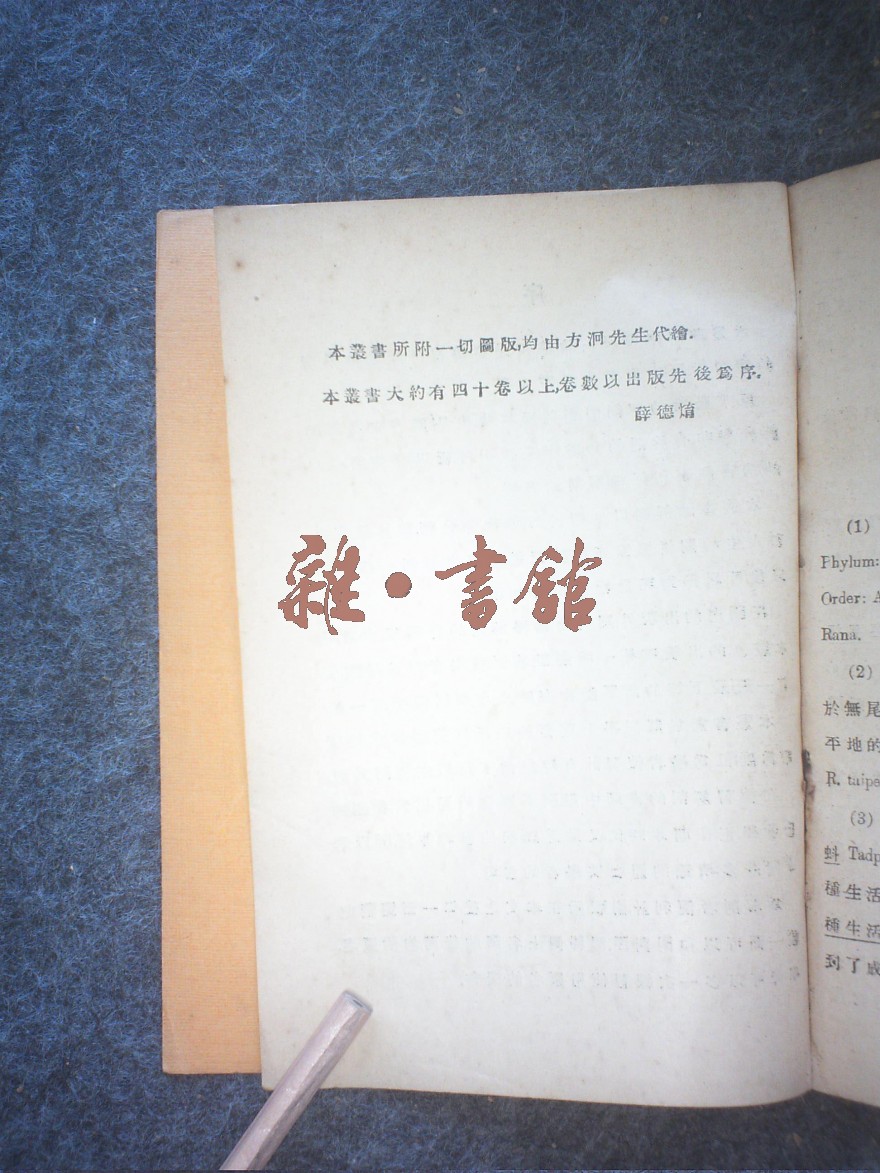 本叢書所附一切圖版,均由方洞先生代繪.
本叢書大約有四十卷以上,卷數以出版先後爲序.
薛德焴
雜・書館
(1)
Phylum:
Order: A
Rana.
(2)
於無尾
平地的
R. taipe
(3)
蚪 Tadp
種生活
種生活
到了成